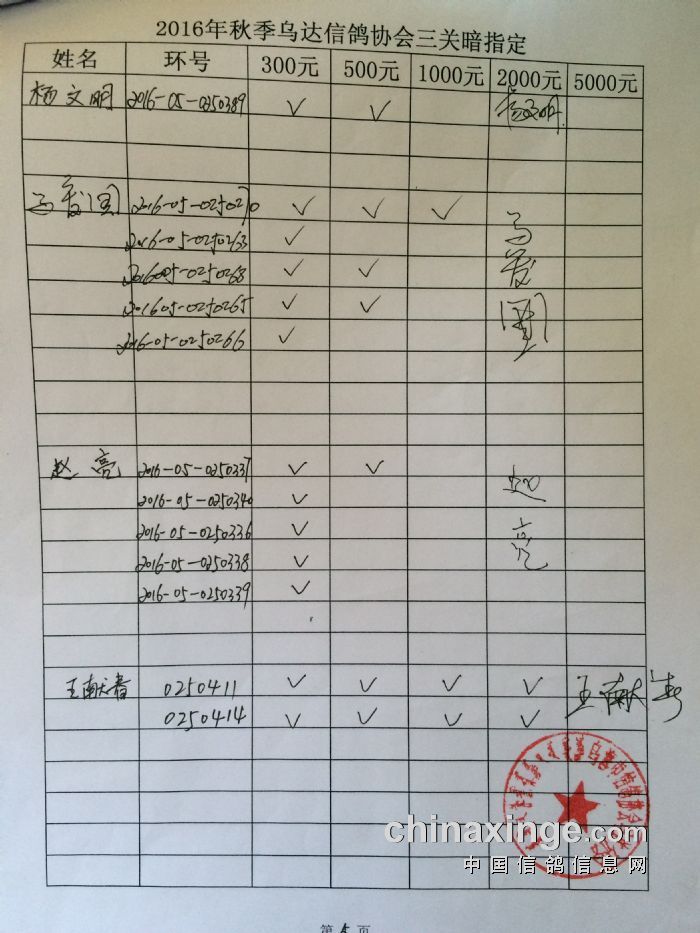 2016年秋季乌达信鸽协会三关暗指定
姓名 环号 300元 500元 1000元 2000元 5000元
杨文明 2016-05-0250389 ✓ ✓ 杨文明
2016-05-0250270 ✓ ✓ ✓
2016-05-0250263 ✓
201605-0250268 ✓ ✓
201605-0250265 ✓ ✓
2016-05-0250266 ✓
赵亮 2016-05-0250337 ✓ ✓ 赵亮
2016-05-0250340 ✓
2016-05-0250336 ✓
2016-05-0250338 ✓
2016-05-0250339 ✓
王献春 0250411 ✓ ✓ ✓ ✓ 王献春
0250414 ✓ ✓ ✓ ✓
chinaxinge.com
中国信鸽信息网
第 5 页